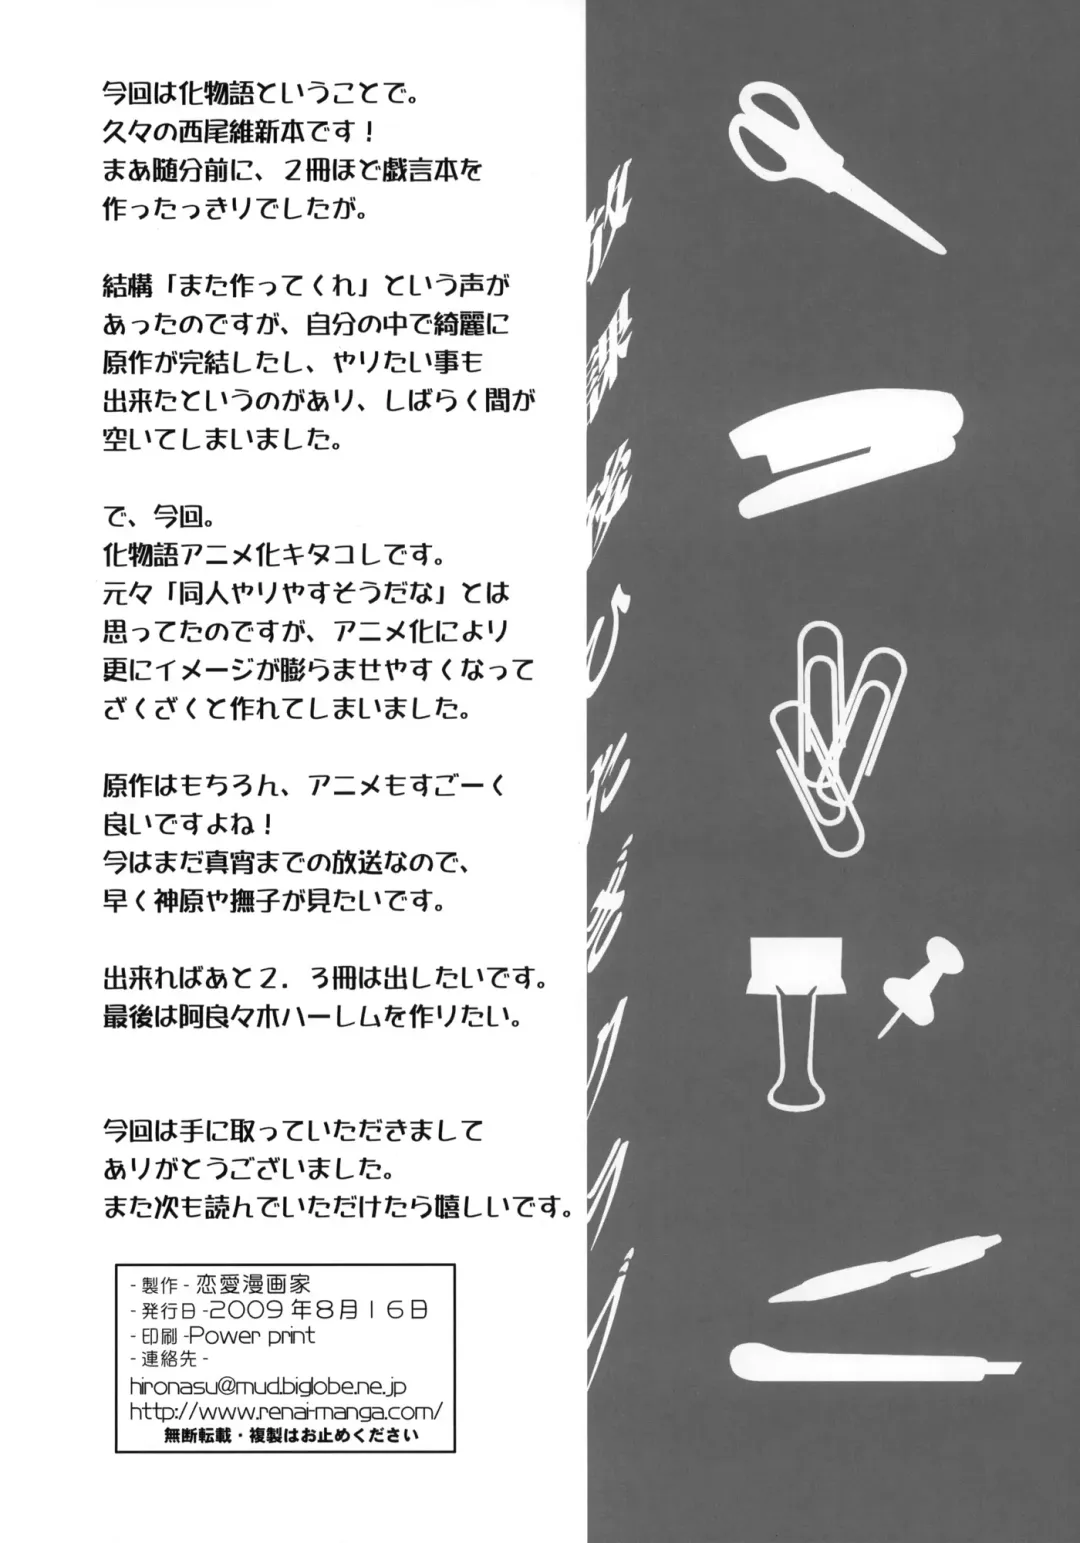 今回は化物語ということで。
久々の西尾維新本です！
まあ随分前に、２冊ほど戯言本を
作ったっきりでしたが。
結構「また作ってくれ」という声が
あったのですが、自分の中で綺麗に
原作が完結したし、やりたい事も
出来たというのがあり、しばらく間が
空いてしまいました。
で、今回。
化物語アニメ化キタコレです。
元々「同人やりやすそうだな」とは
思ってたのですが、アニメ化により
更にイメージが膨らませやすくなって
ざくざくと作れてしまいました。
原作はもちろん、アニメもすごーく
良いですよね！
今はまだ真宵までの放送なので、
早く神原や撫子が見たいです。
出来ればあと２．３冊は出したいです。
最後は阿良々木ハーレムを作りたい。
今回は手に取っていただきまして
ありがとうございました。
また次も読んでいただけたら嬉しいです。
- 製作 - 恋愛漫画家
- 発行日 -2009年8月16日
- 印刷 -Power print
- 連絡先 -
hironasu@mud.biglobe.ne.jp
http://www.renai-manga.com/
無断転載・複製はお止めください